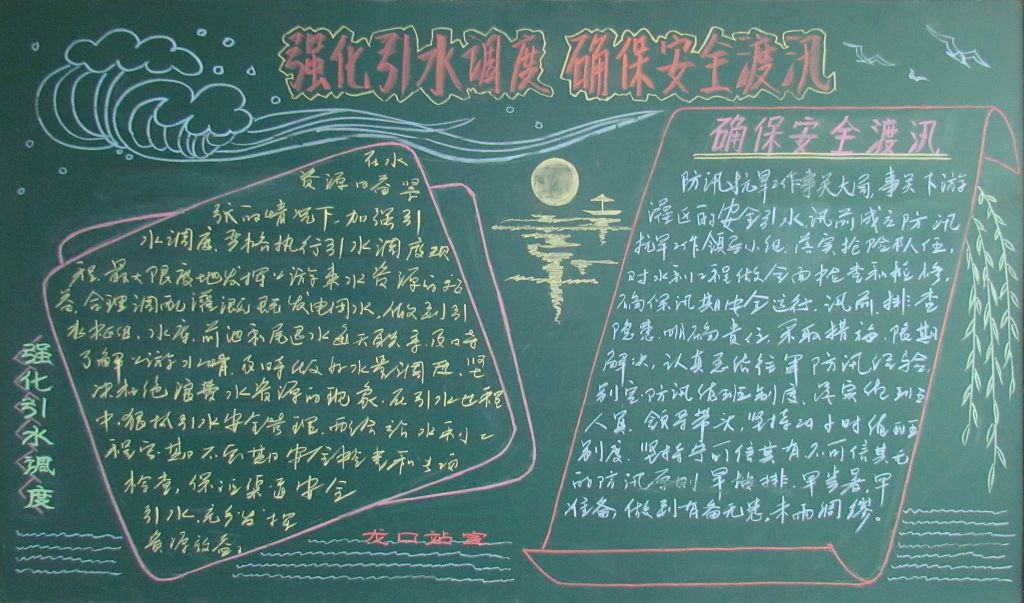 强化引水调度 确保安全渡汛
强化引水调度
在水
资源日益紧
张的情况下,加强引
水调度,严格执行引水调度规
程,最大限度地发挥上游来水资源的效
益,合理调配灌溉、发电用水,做到引
水枢纽、水库、前池和尾水通天联系,及时
了解上游水情,及时做好水量调度,坚
决杜绝浪费水资源的现象。在引水过程
中,狠抓引水安全管理,结合水利工
程定期不定期安全检查和专项
检查,保证渠道安全
引水,充分发挥
资源效益。
确保安全渡汛
防汛抗旱工作事关大局,事关下游
灌区的安全引水,汛前成立防汛
抗旱工作领导小组,落实抢险队伍,
对水利工程做全面检查和检修,
确保汛期安全运行。汛前,排查
隐患,明确责任,采取措施,限期
解决,认真总结往年防汛经验,
制定防汛值班制度,落实值班
人员,领导带头,坚持24小时值班
制度,坚持宁可信其有不可信其无
的防汛原则,早安排,早部署,早
准备,做到有备无患,未雨绸缪。
龙口站宣